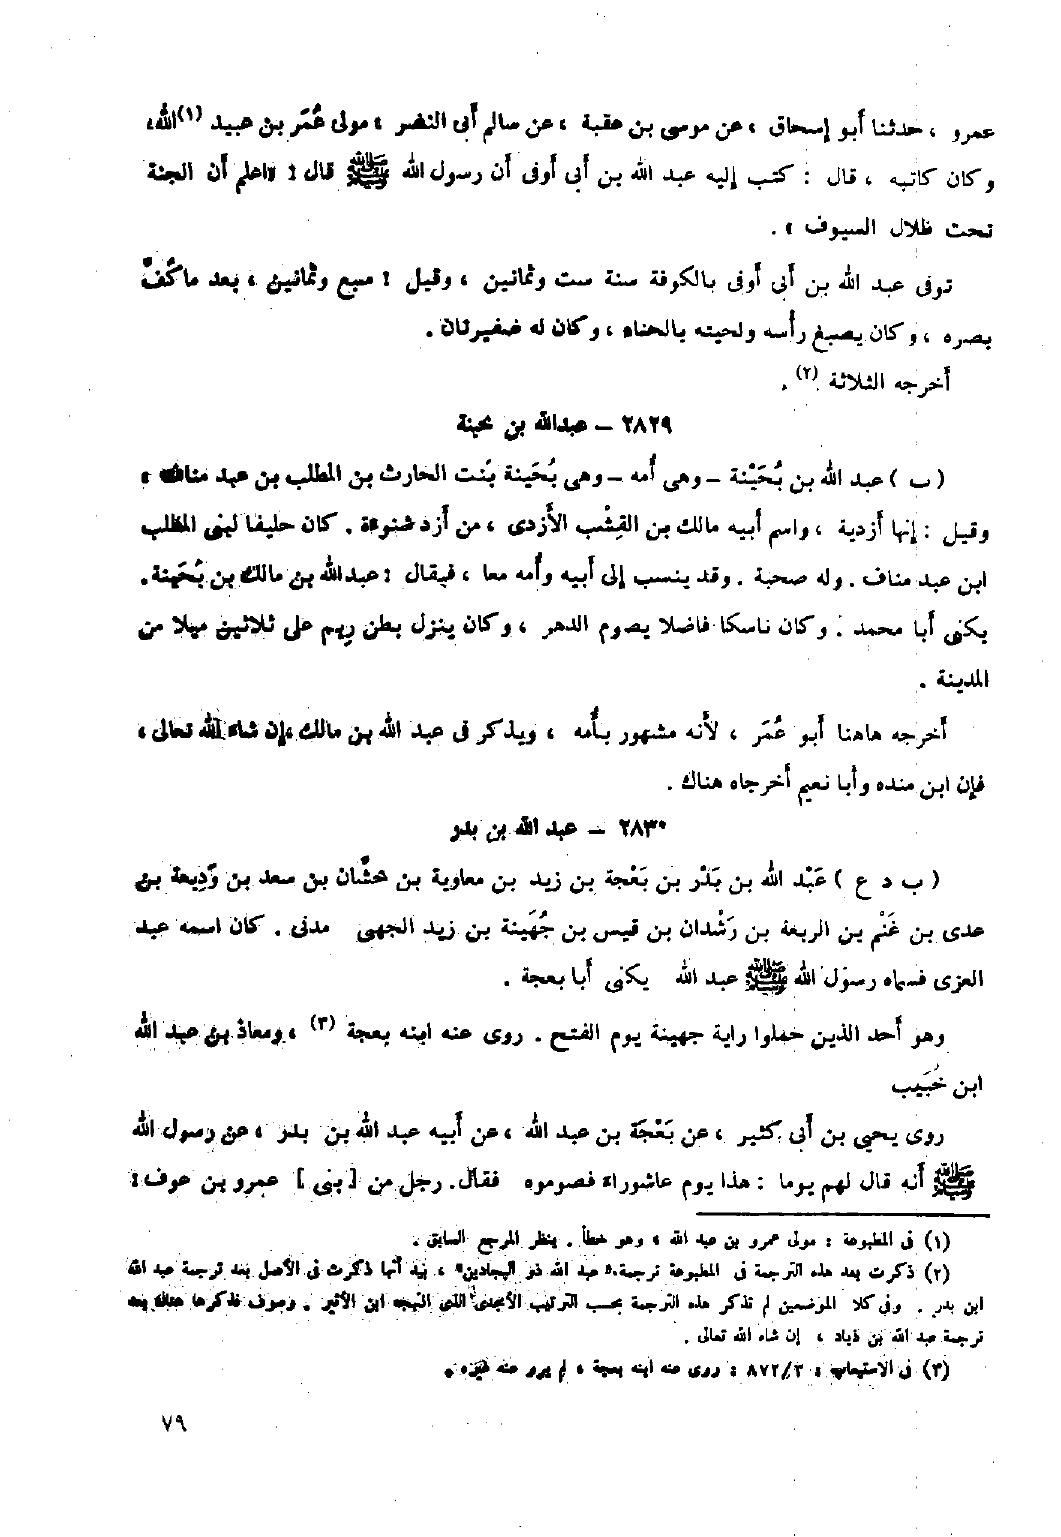 عمرو ، حدثنا أبو إسحاق ، عن موسى بن عقبة ، عن سالم أبى النضر ، مولى عُمَر بن عبيد (١) الله،
وكان كاتبه ، قال : كتب إليه عبد الله بن أبى أوفى أن رسول الله ﷺ قال : «اعلم أن الجنة
تحت ظلال السيوف » .
توفى عبد الله بن أبى أوفى بالكوفة سنة ست وثمانين ، وقيل : سبع وثمانين ، بعد ما كُفَّ
بصره ، وكان يصبغ رأسه ولحيته بالحناء ، وكان له ضفيرتان .
أخرجه الثلاثة (٢) .
٢٨٢٩ – عبدالله بن بحينة
( ب ) عبد الله بن بُحَيْنة – وهى أُمه – وهى بُحَينة بَنت الحارث بن المطلب بن عبد مناف ،
وقيل : إنها أزدية ، واسم أبيه مالك بن القِشْب الأَزدى ، من أزد شنوءة . كان حليفا لبنى المطلب
ابن عبد مناف . وله صحبة . وقد ينسب إلى أبيه وأُمه معا ، فيقال : عبدالله بن مالك بن بُحَينة.
يكنى أبا محمد : وكان ناسكا فاضلا يصوم الدهر ، وكان ينزل بطن رِيم على ثلاثين ميلا من
المدينة .
أخرجه هاهنا أبو عُمَر ، لأنه مشهور بأُمه ، ويذكر فى عبد الله بن مالك ،إن شاء الله تعالى ،
فإن ابن منده وأبا نعيم أخرجاه هناك .
٢٨٣٠ – عبد الله بن بدر
( ب د ع ) عَبْد الله بن بَدْر بن بَعْجة بن زيد بن معاوية بن خشَّان بن سعد بن وَدِيعة بن
عدى بن غَنْم بن الربعة بن رَشْدان بن قيس بن جُهَينة بن زيد الجهنى مدنى . كان اسمه عبد
العزى فسماه رسول الله ﷺ عبد الله يكنى أبا بعجة .
وهو أحد الذين حملوا راية جهينة يوم الفتح . روى عنه ابنه بعجة (٣) ، ومعاذ بن عبد الله
ابن خُبَيب
روى يحيى بن أبى كثير ، عن بَعْجَة بن عبد الله ، عن أبيه عبد الله بن بدر ، عن رسول الله
ﷺ أنه قال لهم يوما : هذا يوم عاشوراء فصوموه فقال. رجل من [ بنى ] عمرو بن عوف :
(١) فى المطبوعة : مولى عمرو بن عبد الله ، وهو خطأ . ينظر المرجع السابق .
(٢) ذكرت بعد هذه الترجمة فى المطبوعة ترجمة «عبد الله ذو البجادين» ، بيد أنها ذكرت فى الأصل بعد ترجمة عبد الله
ابن بدر . وفى كلا الموضعين لم تذكر هذه الترجمة بحسب الترتيب الأبجدى الذى انتهجه ابن الأثير . وسوف نذكرها هناك بعد
ترجمة عبد الله بن ذياد ، إن شاء الله تعالى .
(٣) فى الاستيعاب : ٨٧٢/٣ : روى عنه ابنه بعجة ، لم يرو عنه غيره .
٧٩